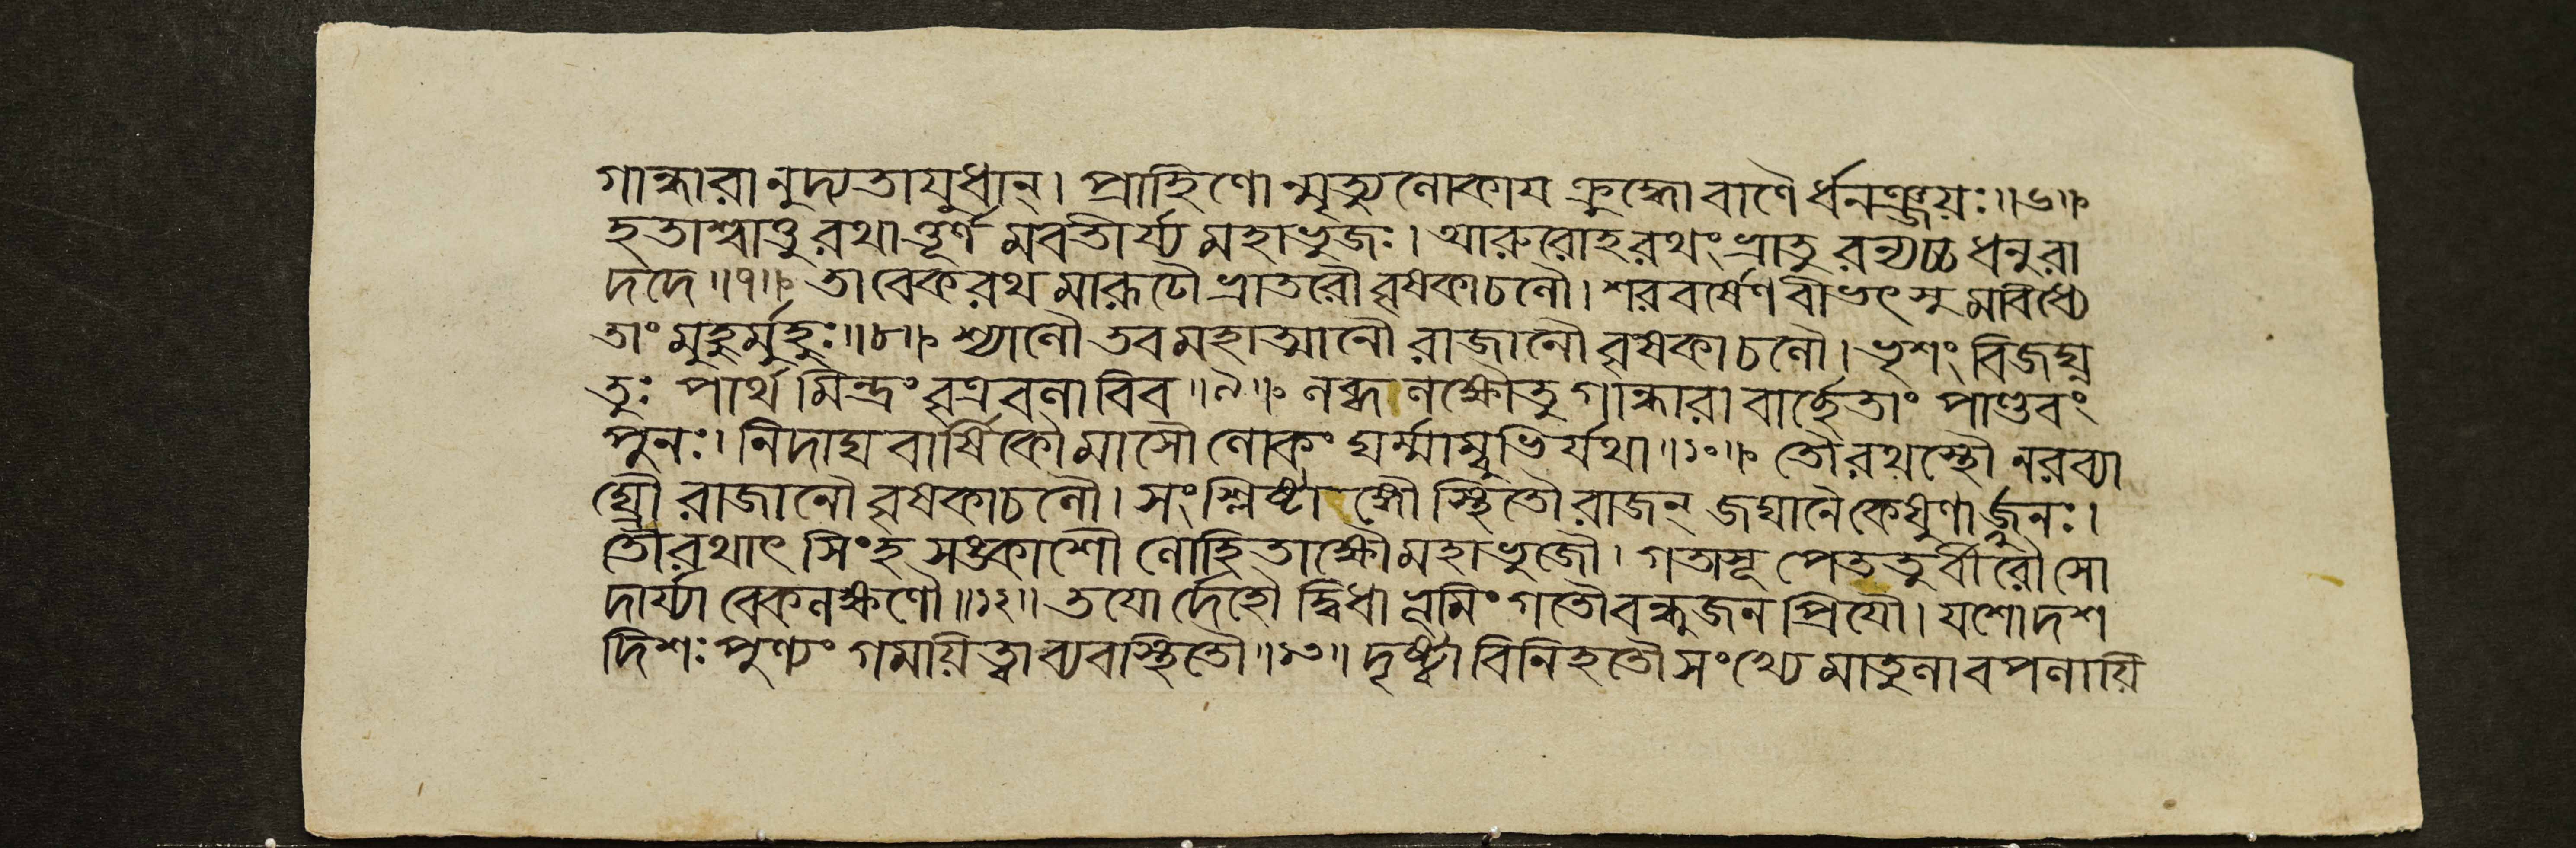 গান্ধারানুদ্যতাযুধান্। প্রাহিণোন্মৃত্যুলোকায ক্রুদ্ধো বাণৈর্ধনঞ্জয়ঃ॥৬॥
হতাশ্বাত্তু রথাত্তূর্ণমবতীর্য্য মহাভুজঃ। আরুরোহ রথং ভ্রাতুরন্যচ্চ ধনুরা
দদে॥৭॥ তাবেকরথমারূঢৌ ভ্রাতরৌ বৃষকাচলৌ। শরবর্ষেণ বীভৎসুমবিধ্যে
তাং মুহুর্মুহুঃ॥৮॥ শ্যালৌ তব মহাত্মানৌ রাজানৌ বৃষকাচলৌ। ভৃশং বিজঘ্ন
তুঃ পার্থমিন্দ্রং বৃত্রবলাবিব॥৯॥ লব্ধলক্ষৌ তু গান্ধারাবার্ছেতাং পাণ্ডবং
পুনঃ। নিদাঘবার্ষিকৌ মাসৌ লোকং ঘর্ম্মাম্বুভির্যথা॥১০॥ তৌ রথস্থৌ নরব্যা
ঘ্রৌ রাজানৌ বৃষকাচলৌ। সংশ্লিষ্টাঙ্গৌ স্থিতৌ রাজন্ জঘানৈকেষুণার্জুনঃ।
তৌ রথাৎ সিংহসঙ্কাশৌ লোহিতাক্ষৌ মহাভুজৌ। গতাসূ পেততুর্বীরৌ সো
দার্য্যাবেকলক্ষণৌ॥১২॥ তযোর্দেহৌ দ্বিধা ভূমিং গতৌ বন্ধুজনপ্রিযৌ। যশো দশ
দিশঃ পুণ্যং গমায়িত্বা ব্যবস্থিতৌ॥১৩॥ দৃষ্ট্বা বিনিহতৌ সংখ্যে মাতুলাবপলায়ি